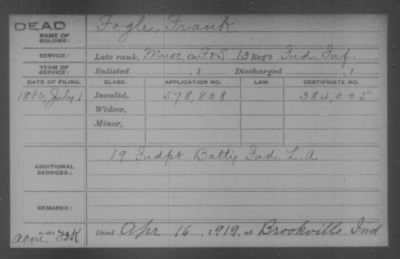 DEAD
NAME OF SOLDIER:
Fogle, Frank
SERVICE:
Late rank, Musc Co F & S 13 Reg't Ind. Inf.
TERM OF SERVICE:
Enlisted 1 Discharged , 1
DATE OF FILING. CLASS. APPLICATION NO. LAW. CERTIFICATE NO.
July 1 Invalid, 578,808 384,005
Widow,
Minor,
ADDITIONAL SERVICES:
19 Indpt Batty Ind. L A
REMARKS:
Died Apr 16, 1919, at Brookville Ind